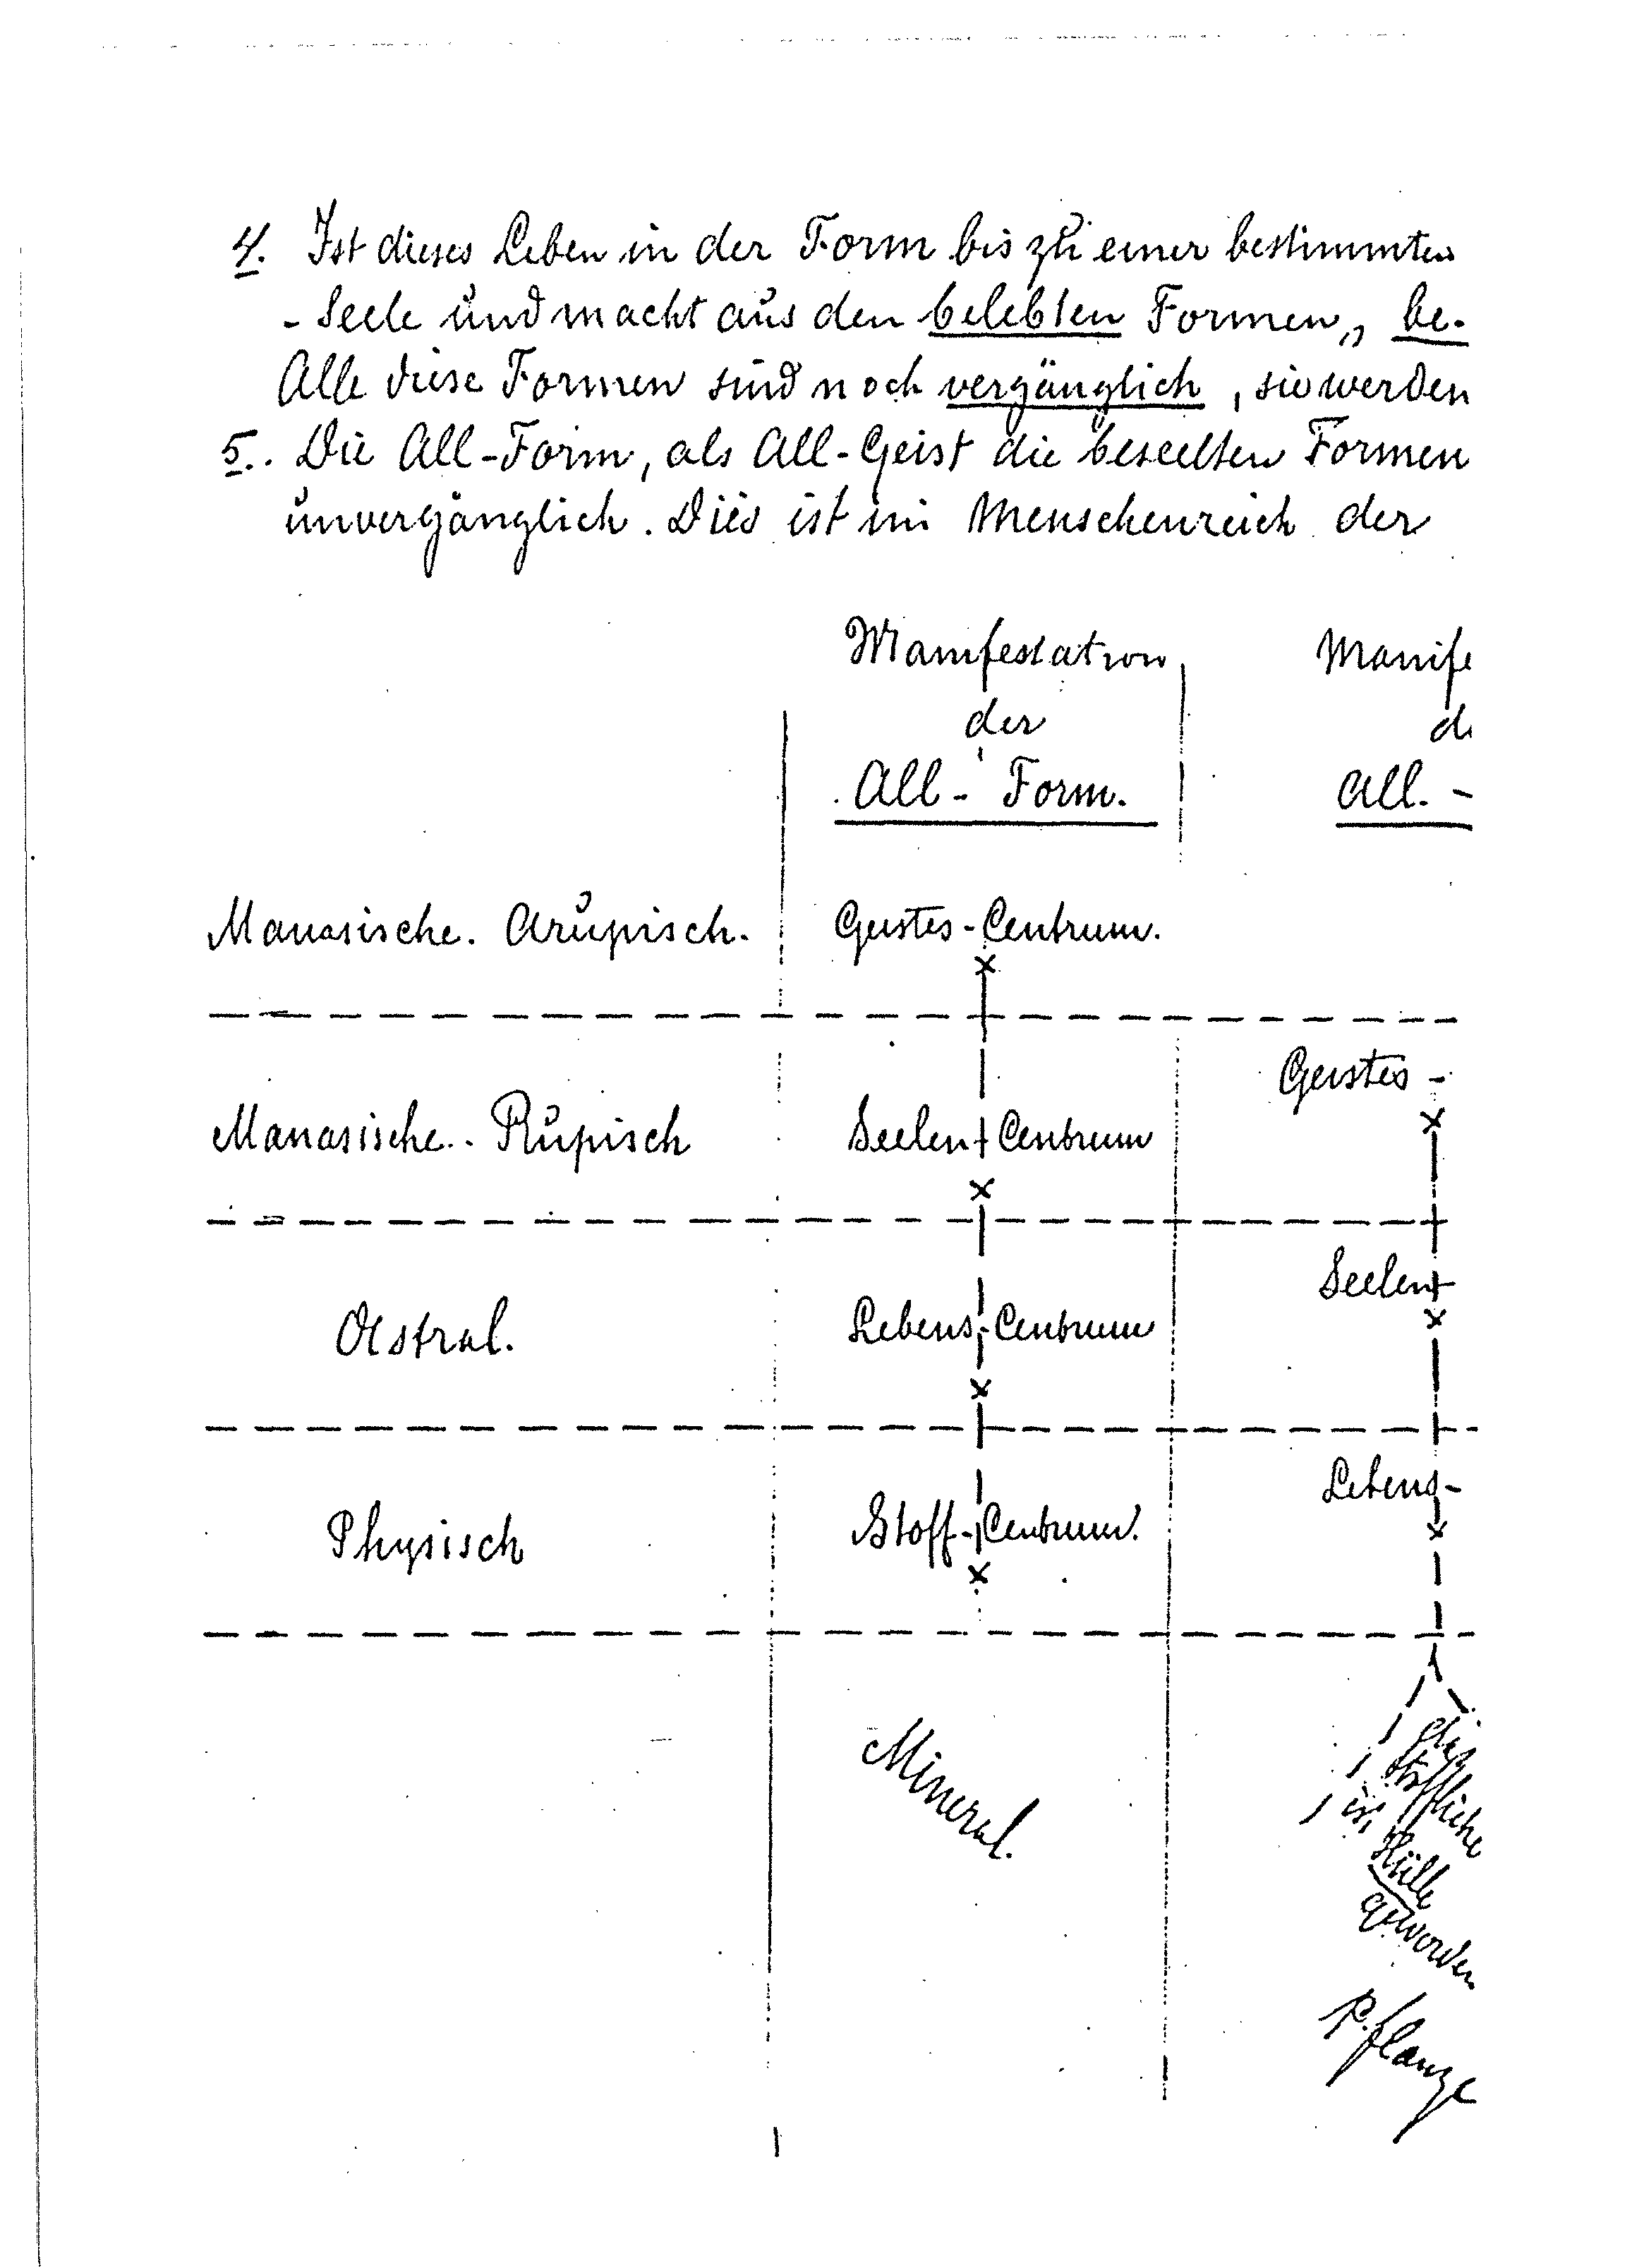 4. Ist dieses Leben in der Form bis zu einer bestimmten
- Seele und macht aus den belebten Formen, be-
Alle diese Formen sind noch vergänglich, sie werden
5. Die All-Form, als All-Geist die beseelten Formen
unvergänglich. Dies ist im Menschenreich der
Manifestation Manife
der de
All- Form. All. -
Manasische. Arupisch. Geistes-Centrum.
Geistes -
Manasische. Rupisch Seelen-Centrum
Seelen-
Astral. Lebens-Centrum
Lebens-
Physisch Stoff-Centrum.
Mineral.
das
Stoffliche
ist
Hülle
geworden
Pflanze